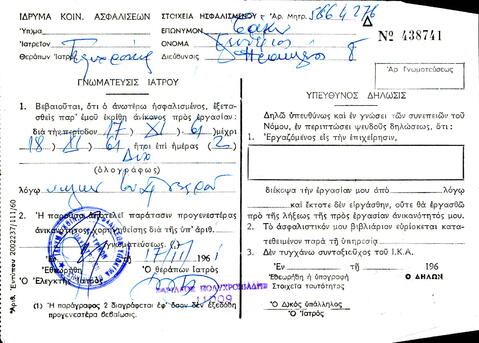 ΙΔΡΥΜΑ ΚΟΙΝ. ΑΣΦΑΛΙΣΕΩΝ
Ὑπ)μα
Ἰατρεῖον
Θεράπων Ἰατρὸς
ΣΤΟΙΧΕΙΑ ΗΣΦΑΛΙΣΜΕΝΟΥ Ἀρ. Μητρ. 5664276
ΕΠΩΝΥΜΟΝ
ΟΝΟΜΑ
Διεύθυνσις
Nº 438741
ΓΝΩΜΑΤΕΥΣΙΣ ΙΑΤΡΟΥ
1. Βεβαιοῦται, ὅτι ὁ ἀνωτέρω ἠσφαλισμένος, ἐξετα-
σθεὶς παρ' ἐμοῦ ἐκρίθη ἀνίκανος πρὸς ἐργασίαν:
διὰ τὴν περίοδον 17 / XI / 61 μέχρι
18 / XI / 61 ἤτοι ἐπὶ ἡμέρας (2)
Δύο
(ὁλογράφως)
λόγῳ
2. Ἡ παροῦσα ἀποτελεῖ παράτασιν προγενεστέρας
ἀνικανότητος χορηγηθείσης διὰ τῆς ὑπ' ἀριθ.
γνωματεύσεως
Ἐν 17/11/ 1961
Ἐθεωρήθη
Ὁ Ἐλεγκτὴς Ἰατρὸς
Ὁ θεράπων Ἰατρὸς
ΒΑΣΙΛΕΙΟΣ ΠΟΛΥΧΡΟΝΙΑΔΗΣ
11009
(1) Ἡ παράγραφος 2 διαγράφεται ἐφ' ὅσον δὲν ἐξεδόθη
προγενεστέρα βεβαίωσις.
Ἀριθ. Ἐντύπου 2002237/111/60
Ἀρ. Γνωματεύσεως
ΥΠΕΥΘΥΝΟΣ ΔΗΛΩΣΙΣ
Δηλῶ ὑπευθύνως καὶ ἐν γνώσει τῶν συνεπειῶν τοῦ
Νόμου, ἐν περιπτώσει ψευδοῦς δηλώσεως, ὅτι:
1. Ἐργαζόμενος εἰς τὴν ἐπιχείρησιν,
διέκοψα τὴν ἐργασίαν μου ἀπὸ λόγῳ
καὶ ἔκτοτε δὲν εἰργάσθην, οὔτε θὰ ἐργασθῶ
πρὸ τῆς λήξεως τῆς πρὸς ἐργασίαν ἀνικανότητός μου.
2. Τὸ ἀσφαλιστικόν μου βιβλιάριον εὑρίσκεται κατα-
τεθειμένον παρὰ τῇ ὑπηρεσίᾳ
3. Δὲν τυγχάνω συνταξιοῦχος τοῦ Ι.Κ.Α.
Ἐν τῇ 196
Ἐθεωρήθη ἡ ὑπογραφὴ
Στοιχεῖα ταυτότητος
Ο ΔΗΛΩΝ
Ὁ Δ)κὸς ὑπάλληλος
Ὁ Ἰατρὸς